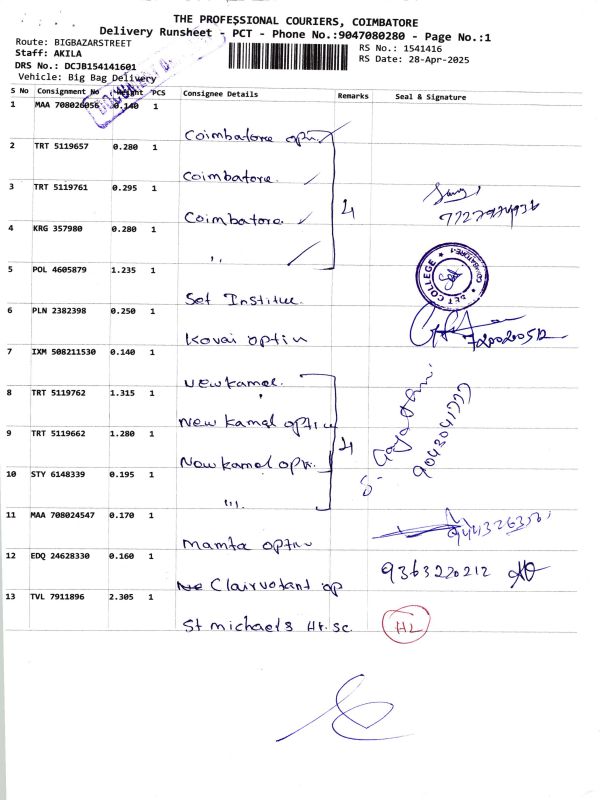 THE PROFESSIONAL COURIERS, COIMBATORE
Delivery Runsheet - PCT - Phone No.:9047080280 - Page No.:1
Route: BIGBAZARSTREET
RS No.: 1541416
Staff: AKILA
RS Date: 28-Apr-2025
DRS No.: DCJB154141601
Vehicle: Big Bag Delivery
S No Consignment No Weight PCS Consignee Details Remarks Seal & Signature
1 MAA 708026056 0.140 1
Coimbatore optn.
2 TRT 5119657 0.280 1
Coimbatore.
3 TRT 5119761 0.295 1
Coimbatore. 4
4 KRG 357980 0.280 1
,,
5 POL 4605879 1.235 1
Set Institue. DET COLLEGE
6 PLN 2382398 0.250 1
Kovai optin
7 IXM 508211530 0.140 1
NEW Kamal.
8 TRT 5119762 1.315 1
New Kamal optice
9 TRT 5119662 1.280 1
New Kamal opn. 4
10 STY 6148339 0.195 1
S. Gayathri.
9043041777
11 MAA 708024547 0.170 1
Mamta optin
12 EDQ 24628330 0.160 1
9363220212
Clairvotant op
13 TVL 7911896 2.305 1
St michaels Hr. sc. HL